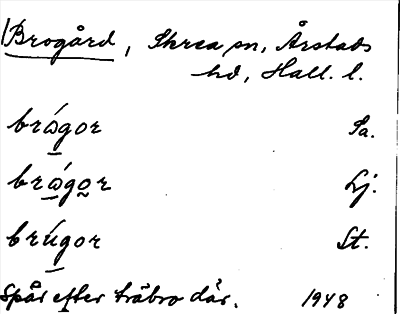 Brogård, Skrea sn, Årstads
hd, Hall. l.
brǿgor Sa.
brǿgor Lj.
brúgor St.
Spår efter träbro där. 1948